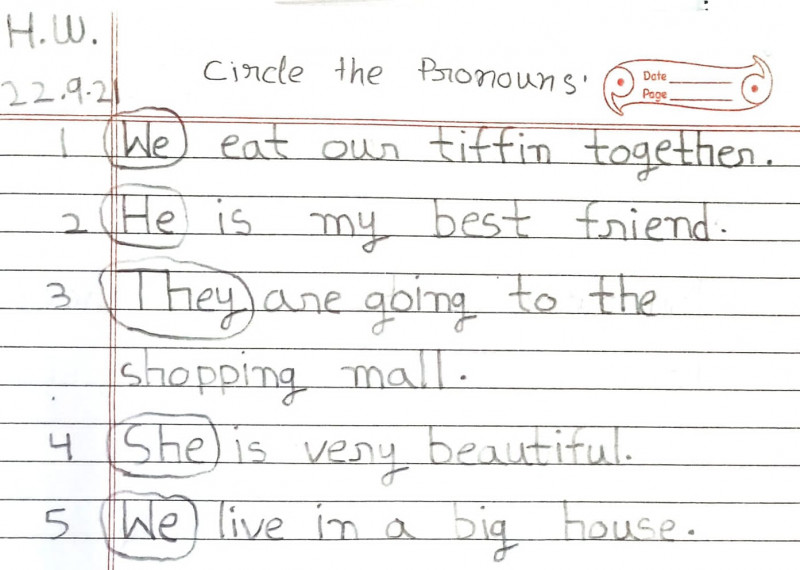 H.W.
Circle the Pronouns.
Date
22.9.21
Page
1 We eat our tiffin together.
2 He is my best friend.
3 They are going to the
shopping mall.
4 She is very beautiful.
5 We live in a big house.